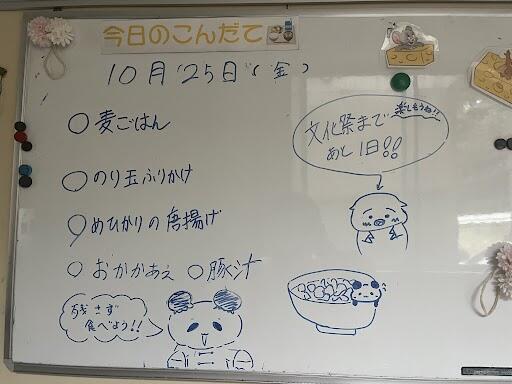 今日のこんだて
10月25日(金)
○麦ごはん
○のり玉ふりかけ
○めひかりの唐揚げ
○おかかあえ ○豚汁
残さず
食べよう!!
文化祭まで
あと1日!!
楽しもうね!!